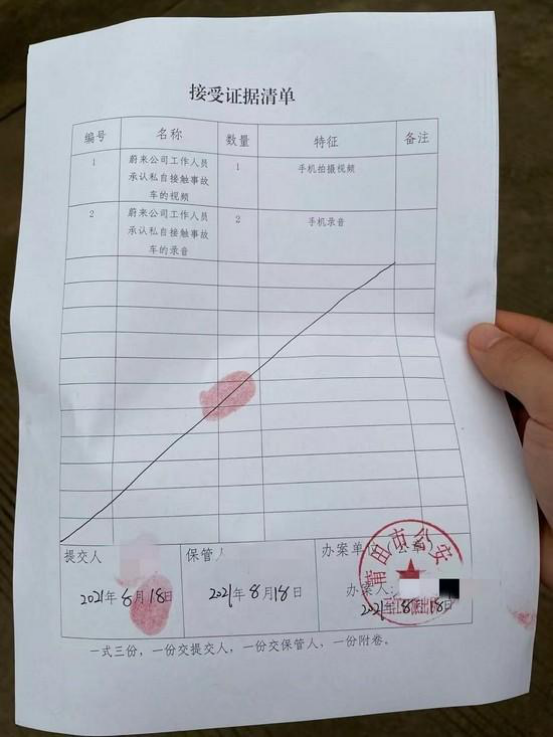 接受证据清单
编号 名称 数量 特征 备注
1 蔚来公司工作人员 1 手机拍摄视频
承认私自接触事故
车的视频
2 蔚来公司工作人员 2 手机录音
承认私自接触事故
车的录音
提交人 保管人 办案单位（公章）
办案人：
2021年8月18日 2021年8月18日 2021年8月18日
莆田市公安
一式三份，一份交提交人，一份交保管人，一份附卷。